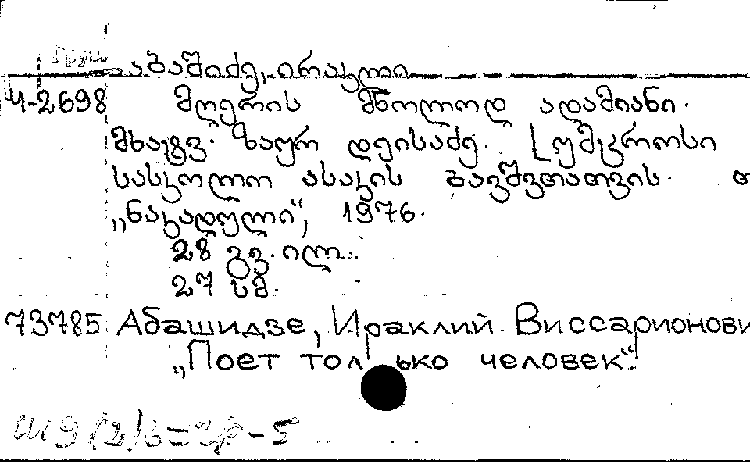 აბაშიძე, ირაკლი
Ч-2698 მღერის მხოლოდ ადამიანი.
მხატვ. ზაურ დეისაძე. [უმცროსი
სასკოლო ასაკის ბავშვთათვის. თ
„ნაკადული“, 1976.
28 გვ. ილ.
27 სმ.
73785 Абашидзе, Ираклий Виссарионови
„Поет только человек“.